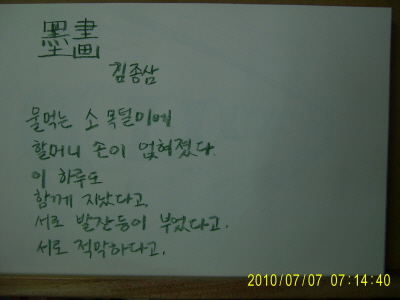 墨畫
김종삼
물먹는 소 목덜미에
할머니 손이 얹혀졌다.
이 하루도
함께 지났다고,
서로 발잔등이 부었다고.
서로 적막하다고.
2010/07/07 07:14:40